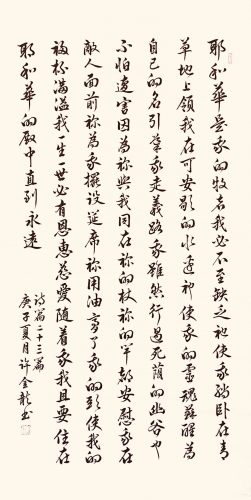 耶和華是我的牧者我必不至缺乏祂使我躺卧在青
草地上領我在可安歇的水邊祂使我的靈魂甦醒為
自己的名引導我走義路我雖然行過死蔭的幽谷也
不怕遭害因為祢與我同在祢的杖祢的竿都安慰我在
敵人面前祢為我擺設筵席祢用油膏了我的頭使我的
福杯滿溢我一生一世必有恩惠慈愛隨着我我且要住在
耶和華的殿中直到永遠
詩篇二十三篇
庚子夏月許金龍書